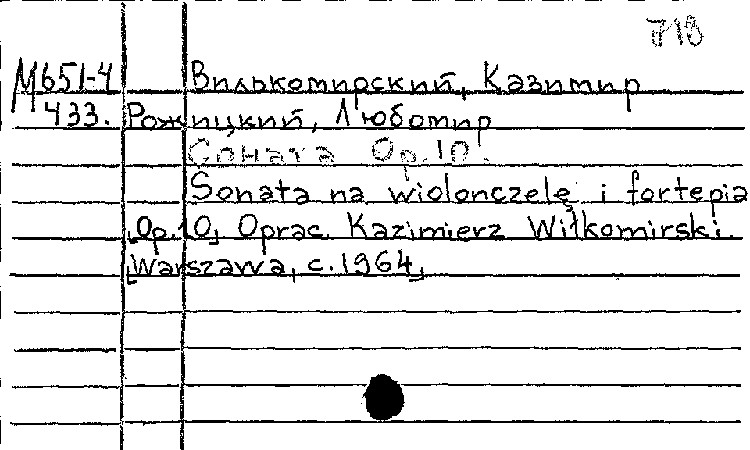 713
М651-4 Вилькомирский, Казимир
433. Рожицкий, Любомир
Соната Op.10.
Sonata na wiolonczelę i fortepia
[Op.10] Oprac. Kazimierz Wiłkomirski.
[Warszawa, c.1964]